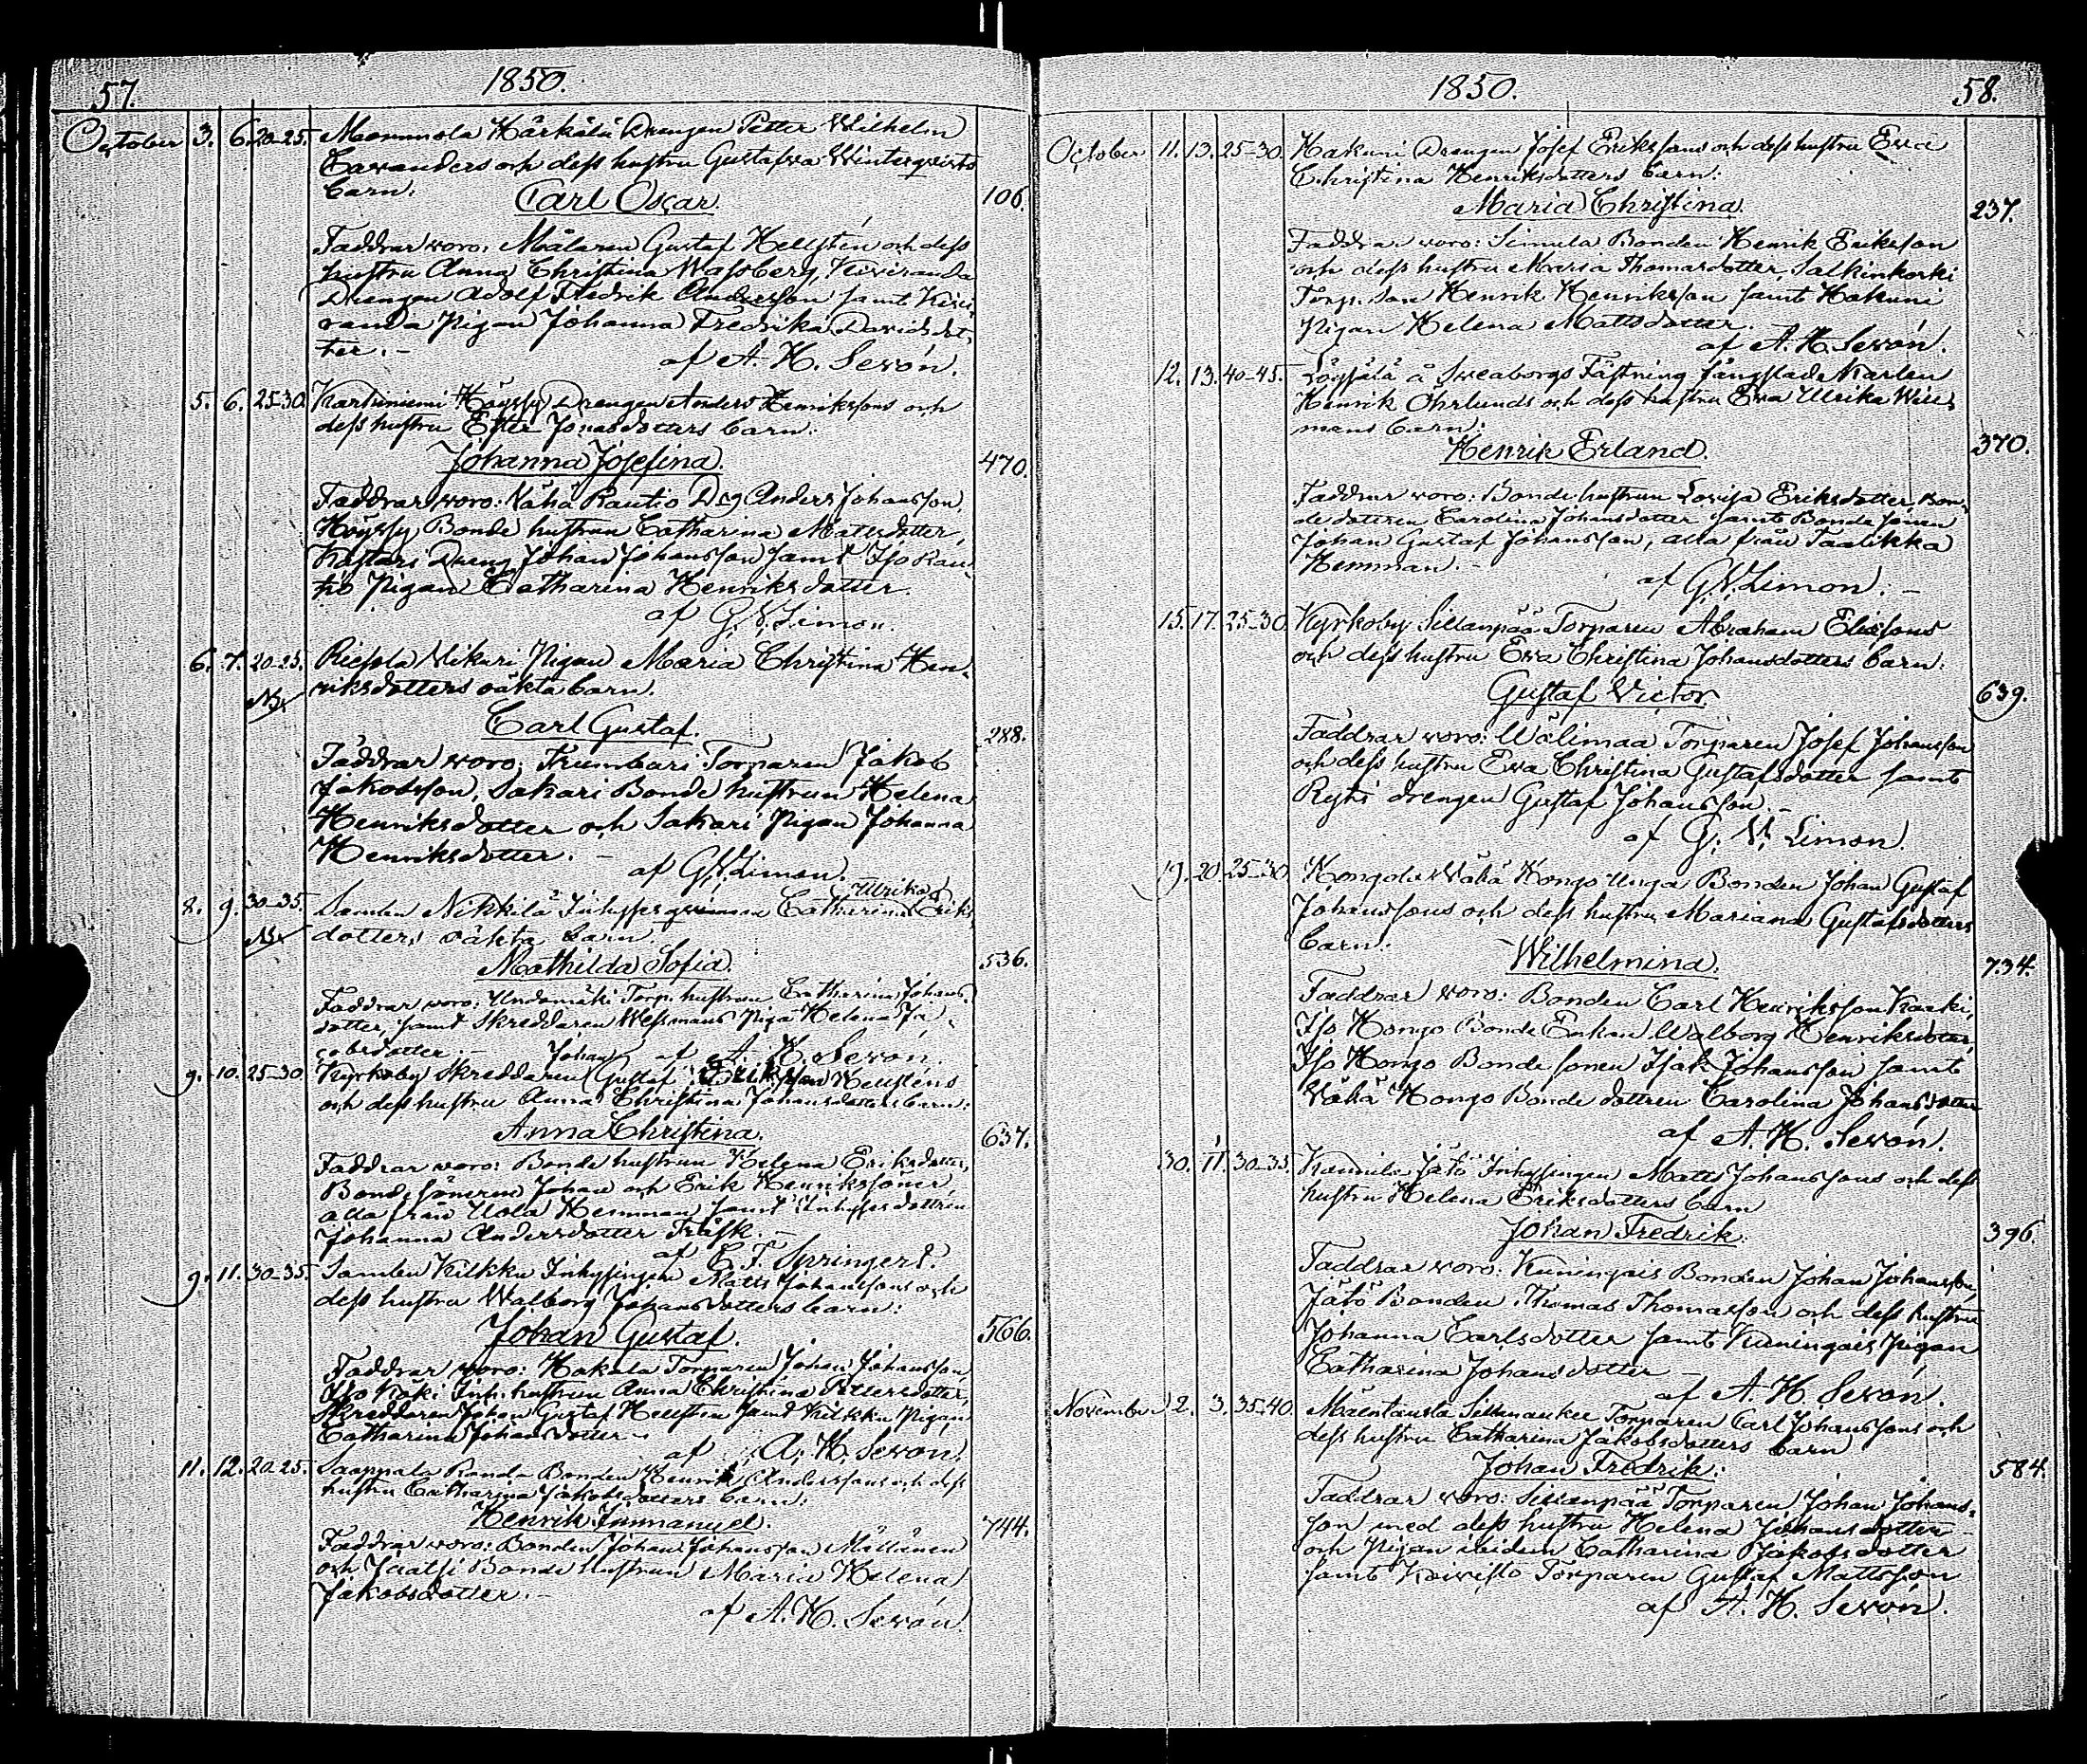 57.
1850.
October 3. 6. 20-25. Mommola Härkälä Drengen Petter Wilhelm
Cavanders och dess hustru Gustafva Winterqvists
barn.
Carl Oscar. 106.
Faddrar voro: Målaren Gustaf Hellstén och dess
hustru Anna Christina Wassberg, Kiviranda
Drengen Adolf Fredrik Andersson samt Kivi-
randa Pigan Johanna Fredrika Davidsdot-
ter. - af A. H. Sevón.
5. 6. 25-30. Karhiniemi Höyssy Drengen Anders Henrikssons och
dess hustru Ester Jonasdotters barn:
Johanna Josefina. 470.
Faddrar voro: Nähä Rautio Dreng Anders Johansson,
Höyssy Bonde hustrun Catharina Mattsdotter,
Dreng Johan Johansson samt Iso Rau-
tio Pigan Catharina Henriksdotter.
af G. V. Limon.
6. 7. 20-25. Vikari Pigan Maria Christina Hen-
riksdotters oäkta barn.
Carl Gustaf. 288.
Faddrar voro: Trumbari Torparen Jakob
Jakobsson, Sakari Bonde hustrun Helena
Henriksdotter och Sakari Pigan Johanna
Henriksdotter. - af G. V. Limon.
8. 9. 30-35. Sambu Nikkilä Inhyses qvinnan Catharina Ulrika Eriks-
dotters oäkta barn.
Mathilda Sofia. 536.
Faddrar voro: Torp. hustrun Catharina Johans-
dotter, samt Skreddaren Wessmans Piga Helena Ja-
cobsdotter. - af A. H. Sevón.
9. 10. 25-30. Kyrkoby Skreddaren Johan Gustaf Hellsténs
och dess hustru Anna Christina Johansdotters barn:
Anna Christina. 637.
Faddrar voro: Bonde hustrun Helena Eriksdotter,
Bonde sönerne Johan och Erik Henrikssöner
alla från Uola Hemman samt Inhyses dottren
Johanna Andersdotter Träsk. -
af C. F. Springert.
9. 11. 30-35. Sambu Kilkku Inhysingen Matts Johanssons och
dess hustru Walborg Johansdotters barn:
Johan Gustaf. 566.
Faddrar voro: Hakala Torparen Johan Johansson,
Iso Inh. hustrun Anna Christina Pettersdotter,
Skreddaren Johan Gustaf Hellstén samt Kilkku Pigan
Catharina Johansdotter. - af A. H. Sevón.
11. 12. 20-25. Randa Bonden Henrik Anderssons och dess
hustru Catharina Jakobsdotters barn:
Henrik Immanuel. 744.
Faddrar voro: Bonden Johan Johansson Mällänen
och Bonde hustrun Maria Helena
Jakobsdotter. -
af A. H. Sevón.
1850.
58.
October 11. 13. 25-30. Hakuni Drengen Josef Erikssons och dess hustru Eva
Christina Henriksdotters barn:
Maria Christina. 237.
Faddrar voro: Simula Bonden Henrik Eriksson
och dess hustru Maria Thomasdotter, Salkinkorki
Torp. Son Henrik Henriksson samt Hakuni
Pigan Helena Mattsdotter.
af A. H. Sevón.
12. 13. 40-45. å Sveaborgs Fästning fängslade Karlen
Henrik Öhrlunds och dess hustru Eva Ulrika Will-
mans barn:
Henrik Erland. 370.
Faddrar voro: Bonde hustrun Lovisa Eriksdotter, Bon-
de dottren Carolina Johansdotter samt Bonde sonen
Johan Gustaf Johansson, alla från Taalikka
Hemman. -
af G. V. Limon. -
15. 17. 25-30. Kyrkoby Sillanpää Torparen Abraham Eliæsons
och dess hustru Eva Christina Johansdotters barn:
Gustaf Victor. 639.
Faddrar voro: Wälimaa Torparen Josef Johansson
och dess hustru Eva Christina Gustafsdotter samt
Ryhi drengen Gustaf Johansson. -
af G. V. Limon.
19. 20. 25-30. Kongola Nähä Hongo Unga Bonden Johan Gustaf
Johanssons och dess hustru Mariana Gustafsdotters
barn:
Wilhelmina. 734.
Faddrar voro: Bonden Carl Henriksson Kaaki,
Iso Hongo Bonde Enkan Walborg Henriksdotter,
Iso Hongo Bonde sonen Isak Johansson samt
Nähä Hongo Bonde dottren Carolina Johansdotter
af A. H. Sevón.
30. 1/11. 30-35. Kaunila Jätö Inhysingen Matts Johanssons och dess
hustru Helena Eriksdotters barn
Johan Fredrik. 396.
Faddrar voro: Kuningais Bonden Johan Johansson,
Jätö Bonden Thomas Thomasson och dess hustru
Johanna Carlsdotter samt Kuningais Pigan
Catharina Johansdotter -
af A. H. Sevón.
November 2. 3. 35-40. Mäentausta Torparen Carl Johanssons och
dess hustru Catharina Jakobsdotters barn
Johan Fredrik. 584.
Faddrar voro: Sillanpää Torparen Johan Johans-
son med dess hustru Helena Johansdotter
och Pigan Catharina Jakobsdotter
samt Koivisto Torparen Gustaf Mattsson
af A. H. Sevón.